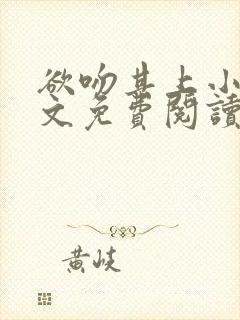 欲吻其上小
文免費閱讀
黄岐